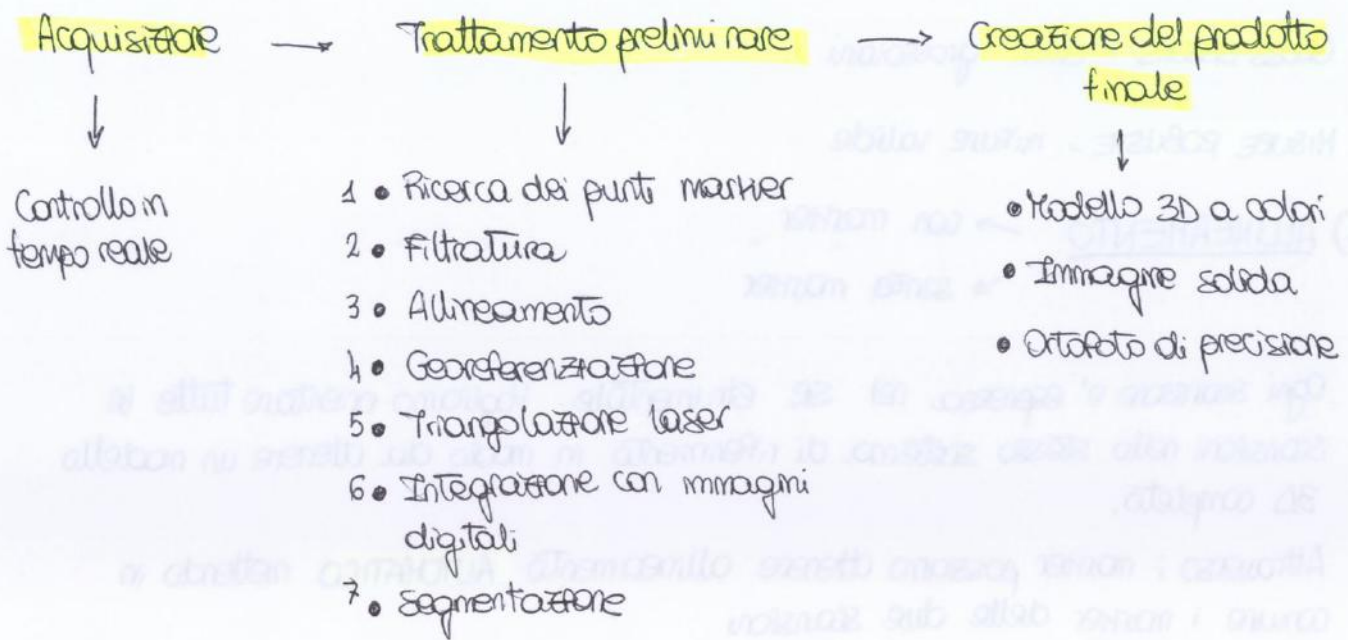 Acquisizione → Trattamento preliminare → Creazione del prodotto
finale
↓ ↓ ↓
Controllo in
tempo reale
1 • Ricerca dei punti marker
2 • Filtratura
3 • Allineamento
4 • Georeferenziazione
5 • Triangolazione laser
6 • Integrazione con immagini
digitali
7 • Segmentazione
• Modello 3D a colori
• Immagine solida
• Ortofoto di precisione